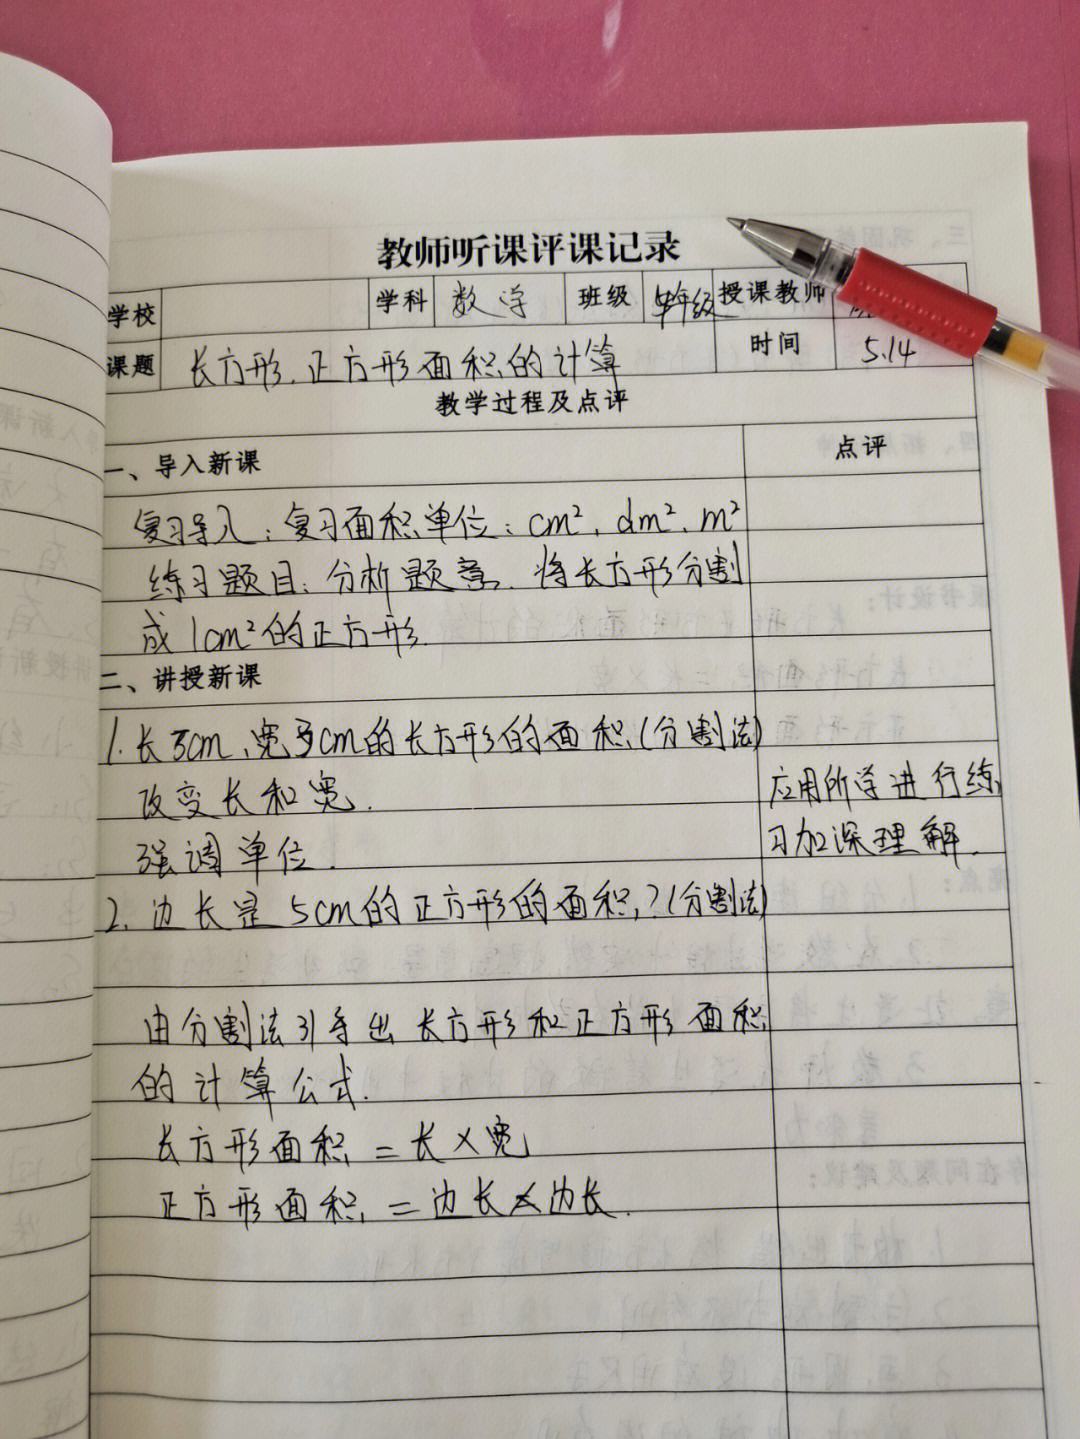 教师听课评课记录
学校 学科 数学 班级 年级 授课教师
课题 长方形、正方形面积的计算 时间 5.14
教学过程及点评
一、导入新课 点评
复习导入：复习面积单位：cm²、dm²、m²
练习题目：分析题意、将长方形分割
成1cm²的正方形.
二、讲授新课
1.长5cm、宽3cm的长方形的面积(分割法)
改变长和宽. 应用所学进行练
强调单位. 习加深理解.
2.边长是5cm的正方形的面积?(分割法)
由分割法引导出长方形和正方形面积
的计算公式.
长方形面积=长×宽
正方形面积=边长×边长.